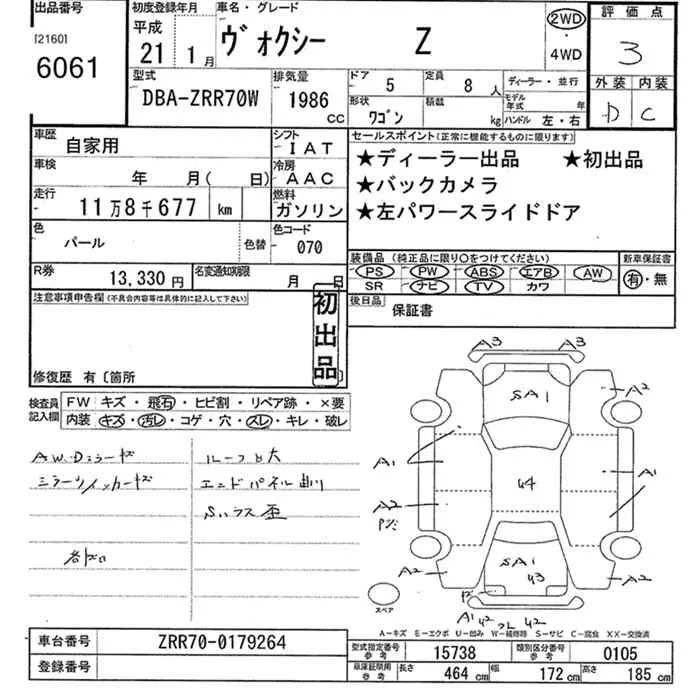 出品番号
[2160]
6061
初度登録年月
平成
21 1月
車名・グレード
ヴォクシー Z
2WD
・
4WD
評価点
3
外装 内装
D C
型式
DBA-ZRR70W
排気量
1986
CC
ドア
5
定員
8人
形状
ワゴン
積載
kg
ディーラー・並行
モデル年式 年
ハンドル 左・右
車歴
自家用
シフト
IAT
車検
年 月( 日)
冷房
AAC
走行
11万8千677 km
燃料
ガソリン
色
パール
色替
色コード
070
R券
13,330円
名変通知期限
月 日
セールスポイント(正常に機能するものに限ります)
★ディーラー出品 ★初出品
★バックカメラ
★左パワースライドドア
装備品(純正品に限り○をつけてください)
PS PW ABS エアB AW
SR ナビ TV カワ
新車保証書
有・無
後日品
保証書
注意事項申告欄(不具合内容等は具体的に記入して下さい)
初出品
修復歴 有〔箇所
検査員記入欄
FW キズ・飛石・ヒビ割・リペア跡・×要
内装 キズ・汚レ・コゲ・穴・スレ・キレ・破レ
ルーフ凹大
エンドパネル曲
A3 A3
SA1
A2
A1
A1
U4
A2
SA1
U3
A2
A2
A1 U2
U2
スペア
A-キズ E-エクボ U-凹み W-補修跡 S-サビ C-腐食 XX-交換済
車台番号
ZRR70-0179264
登録番号
型式指定番号参考
15738
類別区分番号参考
0105
車庫証明用参考
長さ
464 cm
幅
172 cm
高さ
185 cm